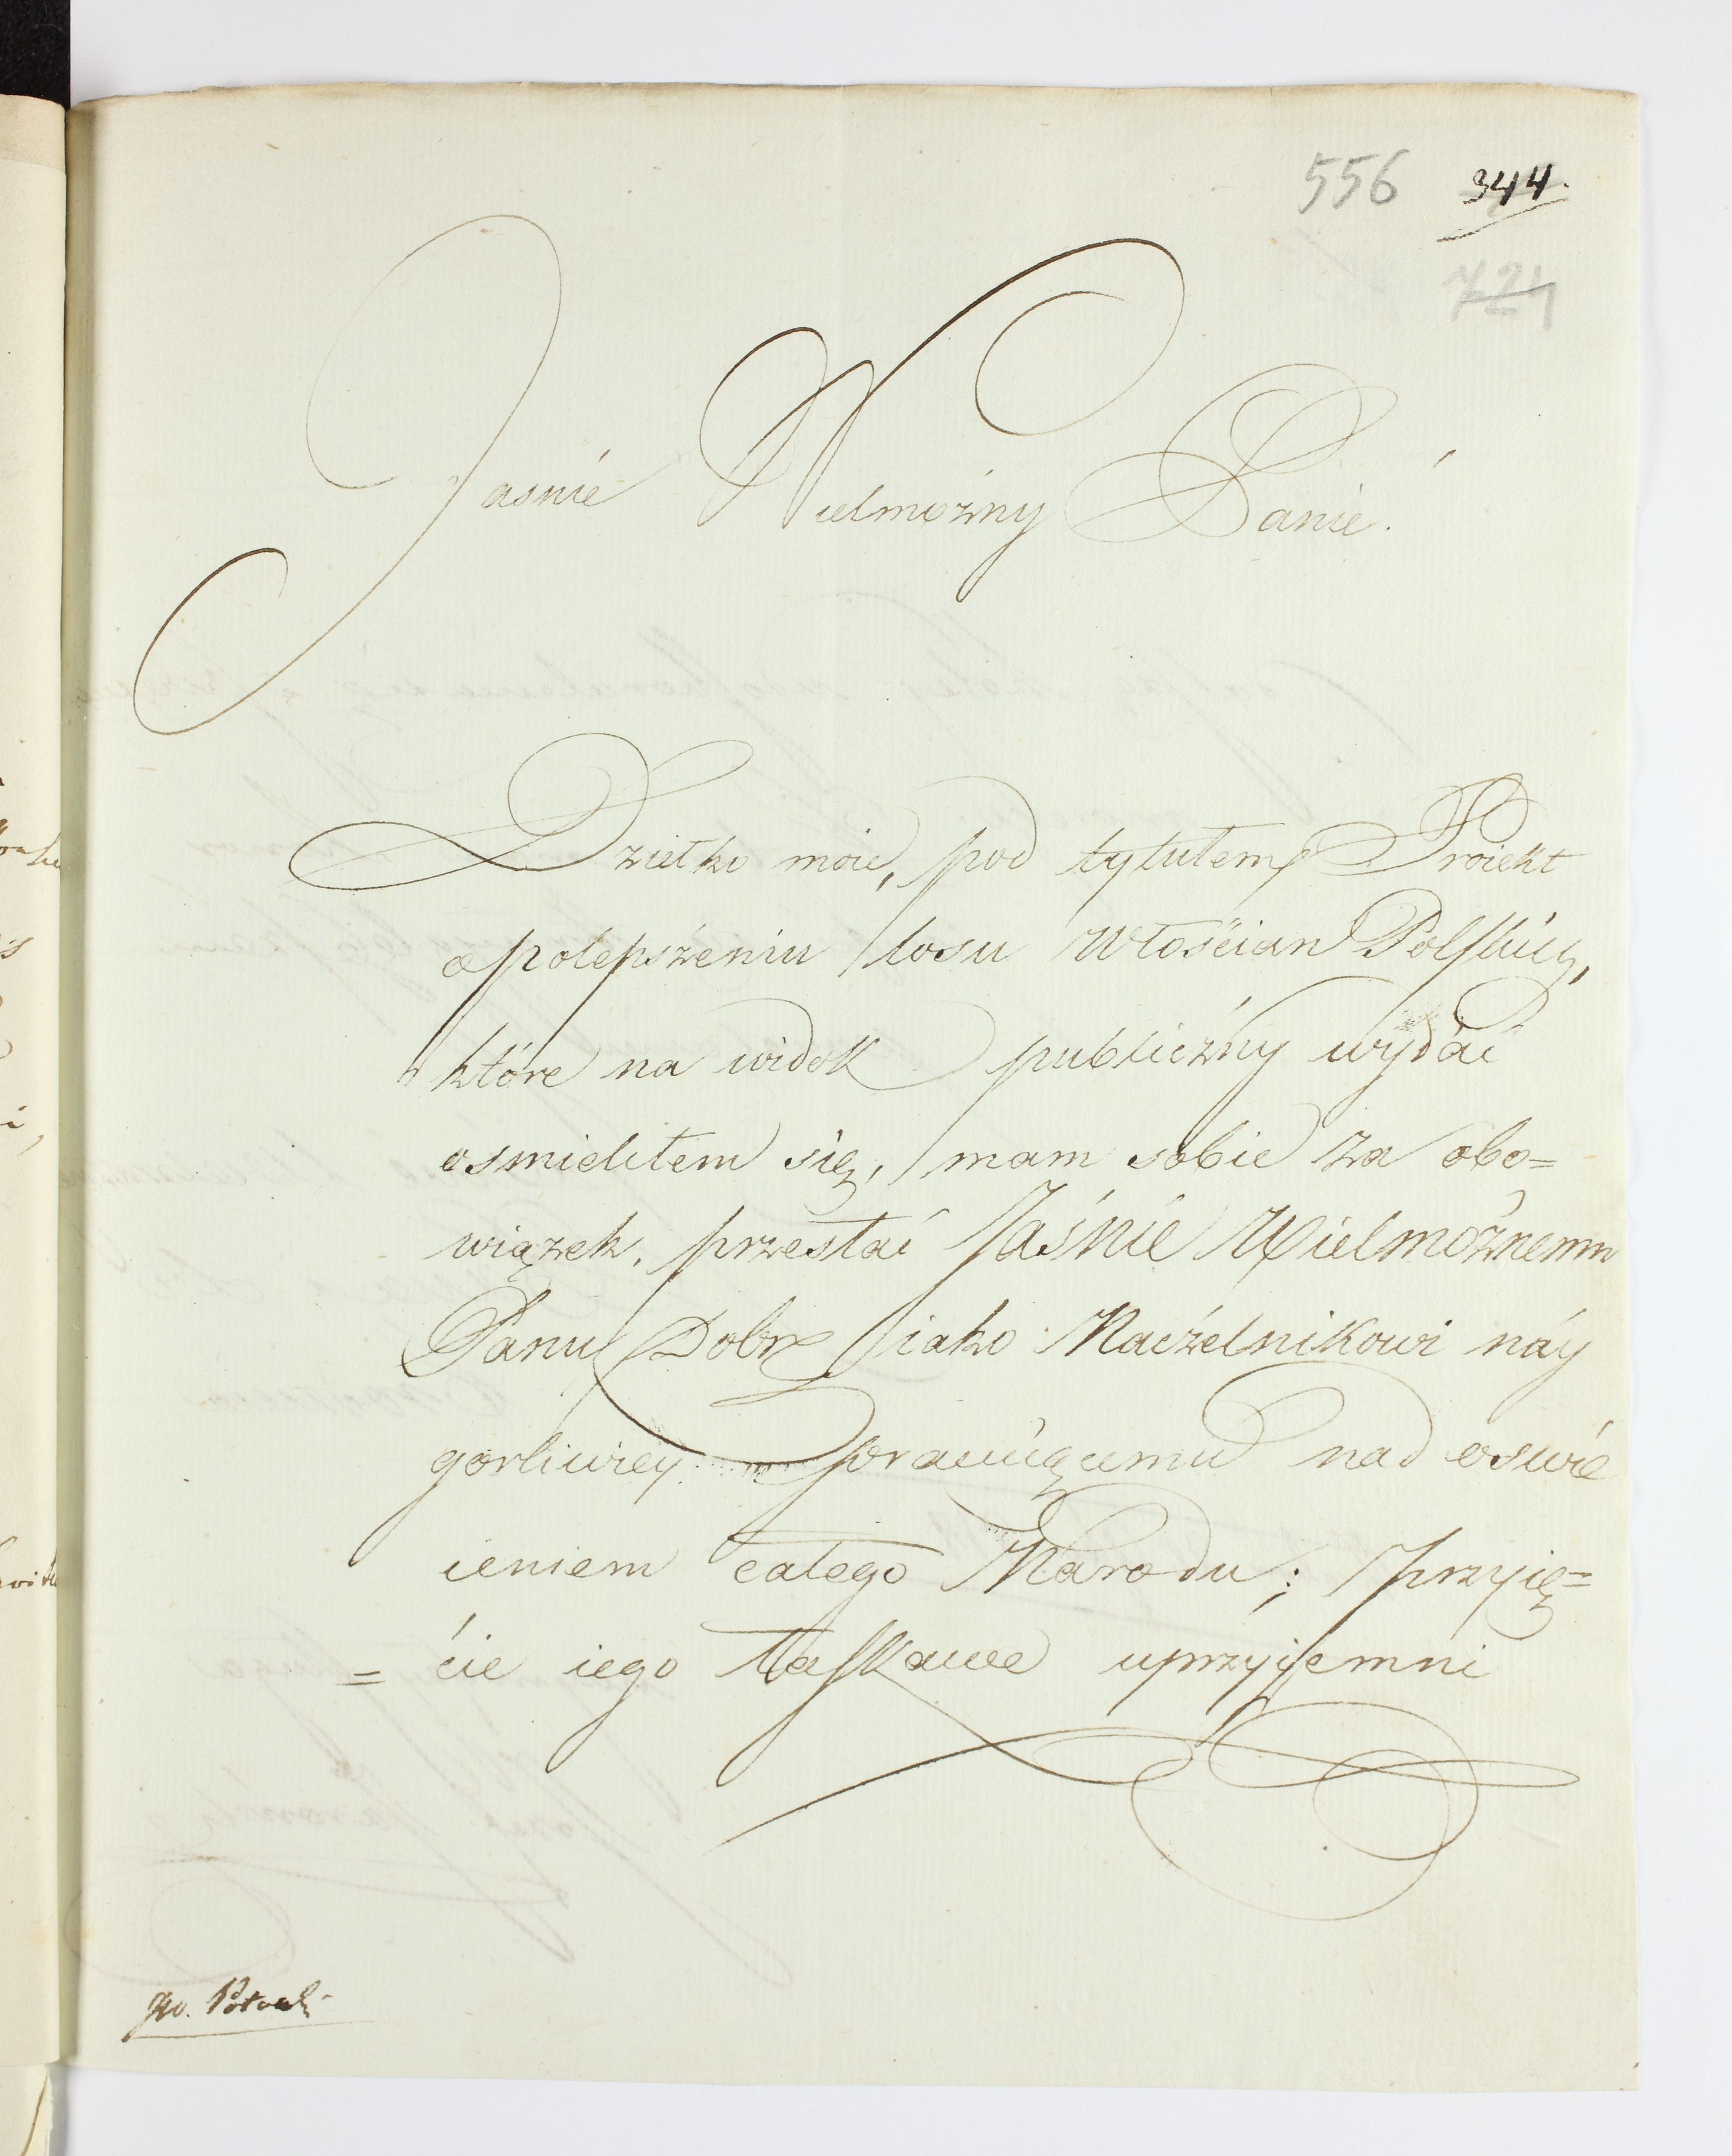 556 344.
724
Jasnie Wielmożny Panie.
Dziełko moie, pod tytułem Proiekt
o polepszeniu losu Włościan Polskich,
które na widok publiczny wydać
osmieliłem się, mam sobie za obo=
wiązek, przesłać Jaśnie Wielmożnemu
Panu Dobr iako Naczelnikowi náy
gorliwiey pracuiącemu nad oswie
ceniem całego Narodu; przyię=
= cie iego łaskawe uprzyjemni